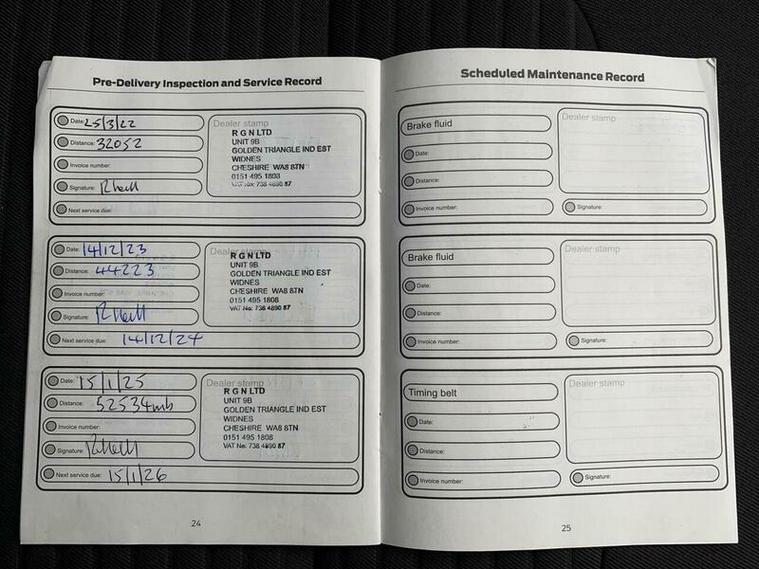 Pre-Delivery Inspection and Service Record
Date: 25/3/22
Distance: 32052
Invoice number:
Signature:
Next service due:
Dealer stamp
R G N LTD
UNIT 9B
GOLDEN TRIANGLE IND EST
WIDNES
CHESHIRE WA8 8TN
0151 495 1808
VAT No: 738 4890 87
Date: 14/12/23
Distance: 44223
Invoice number:
Signature:
Next service due: 14/12/24
Dealer stamp
R G N LTD
UNIT 9B
GOLDEN TRIANGLE IND EST
WIDNES
CHESHIRE WA8 8TN
0151 495 1808
VAT No: 738 4890 87
Date: 15/1/25
Distance: 52534mls
Invoice number:
Signature:
Next service due: 15/1/26
Dealer stamp
R G N LTD
UNIT 9B
GOLDEN TRIANGLE IND EST
WIDNES
CHESHIRE WA8 8TN
0151 495 1808
VAT No: 738 4890 87
24
Scheduled Maintenance Record
Brake fluid
Date:
Distance:
Invoice number:
Dealer stamp
Signature:
Brake fluid
Date:
Distance:
Invoice number:
Dealer stamp
Signature:
Timing belt
Date:
Distance:
Invoice number:
Dealer stamp
Signature:
25